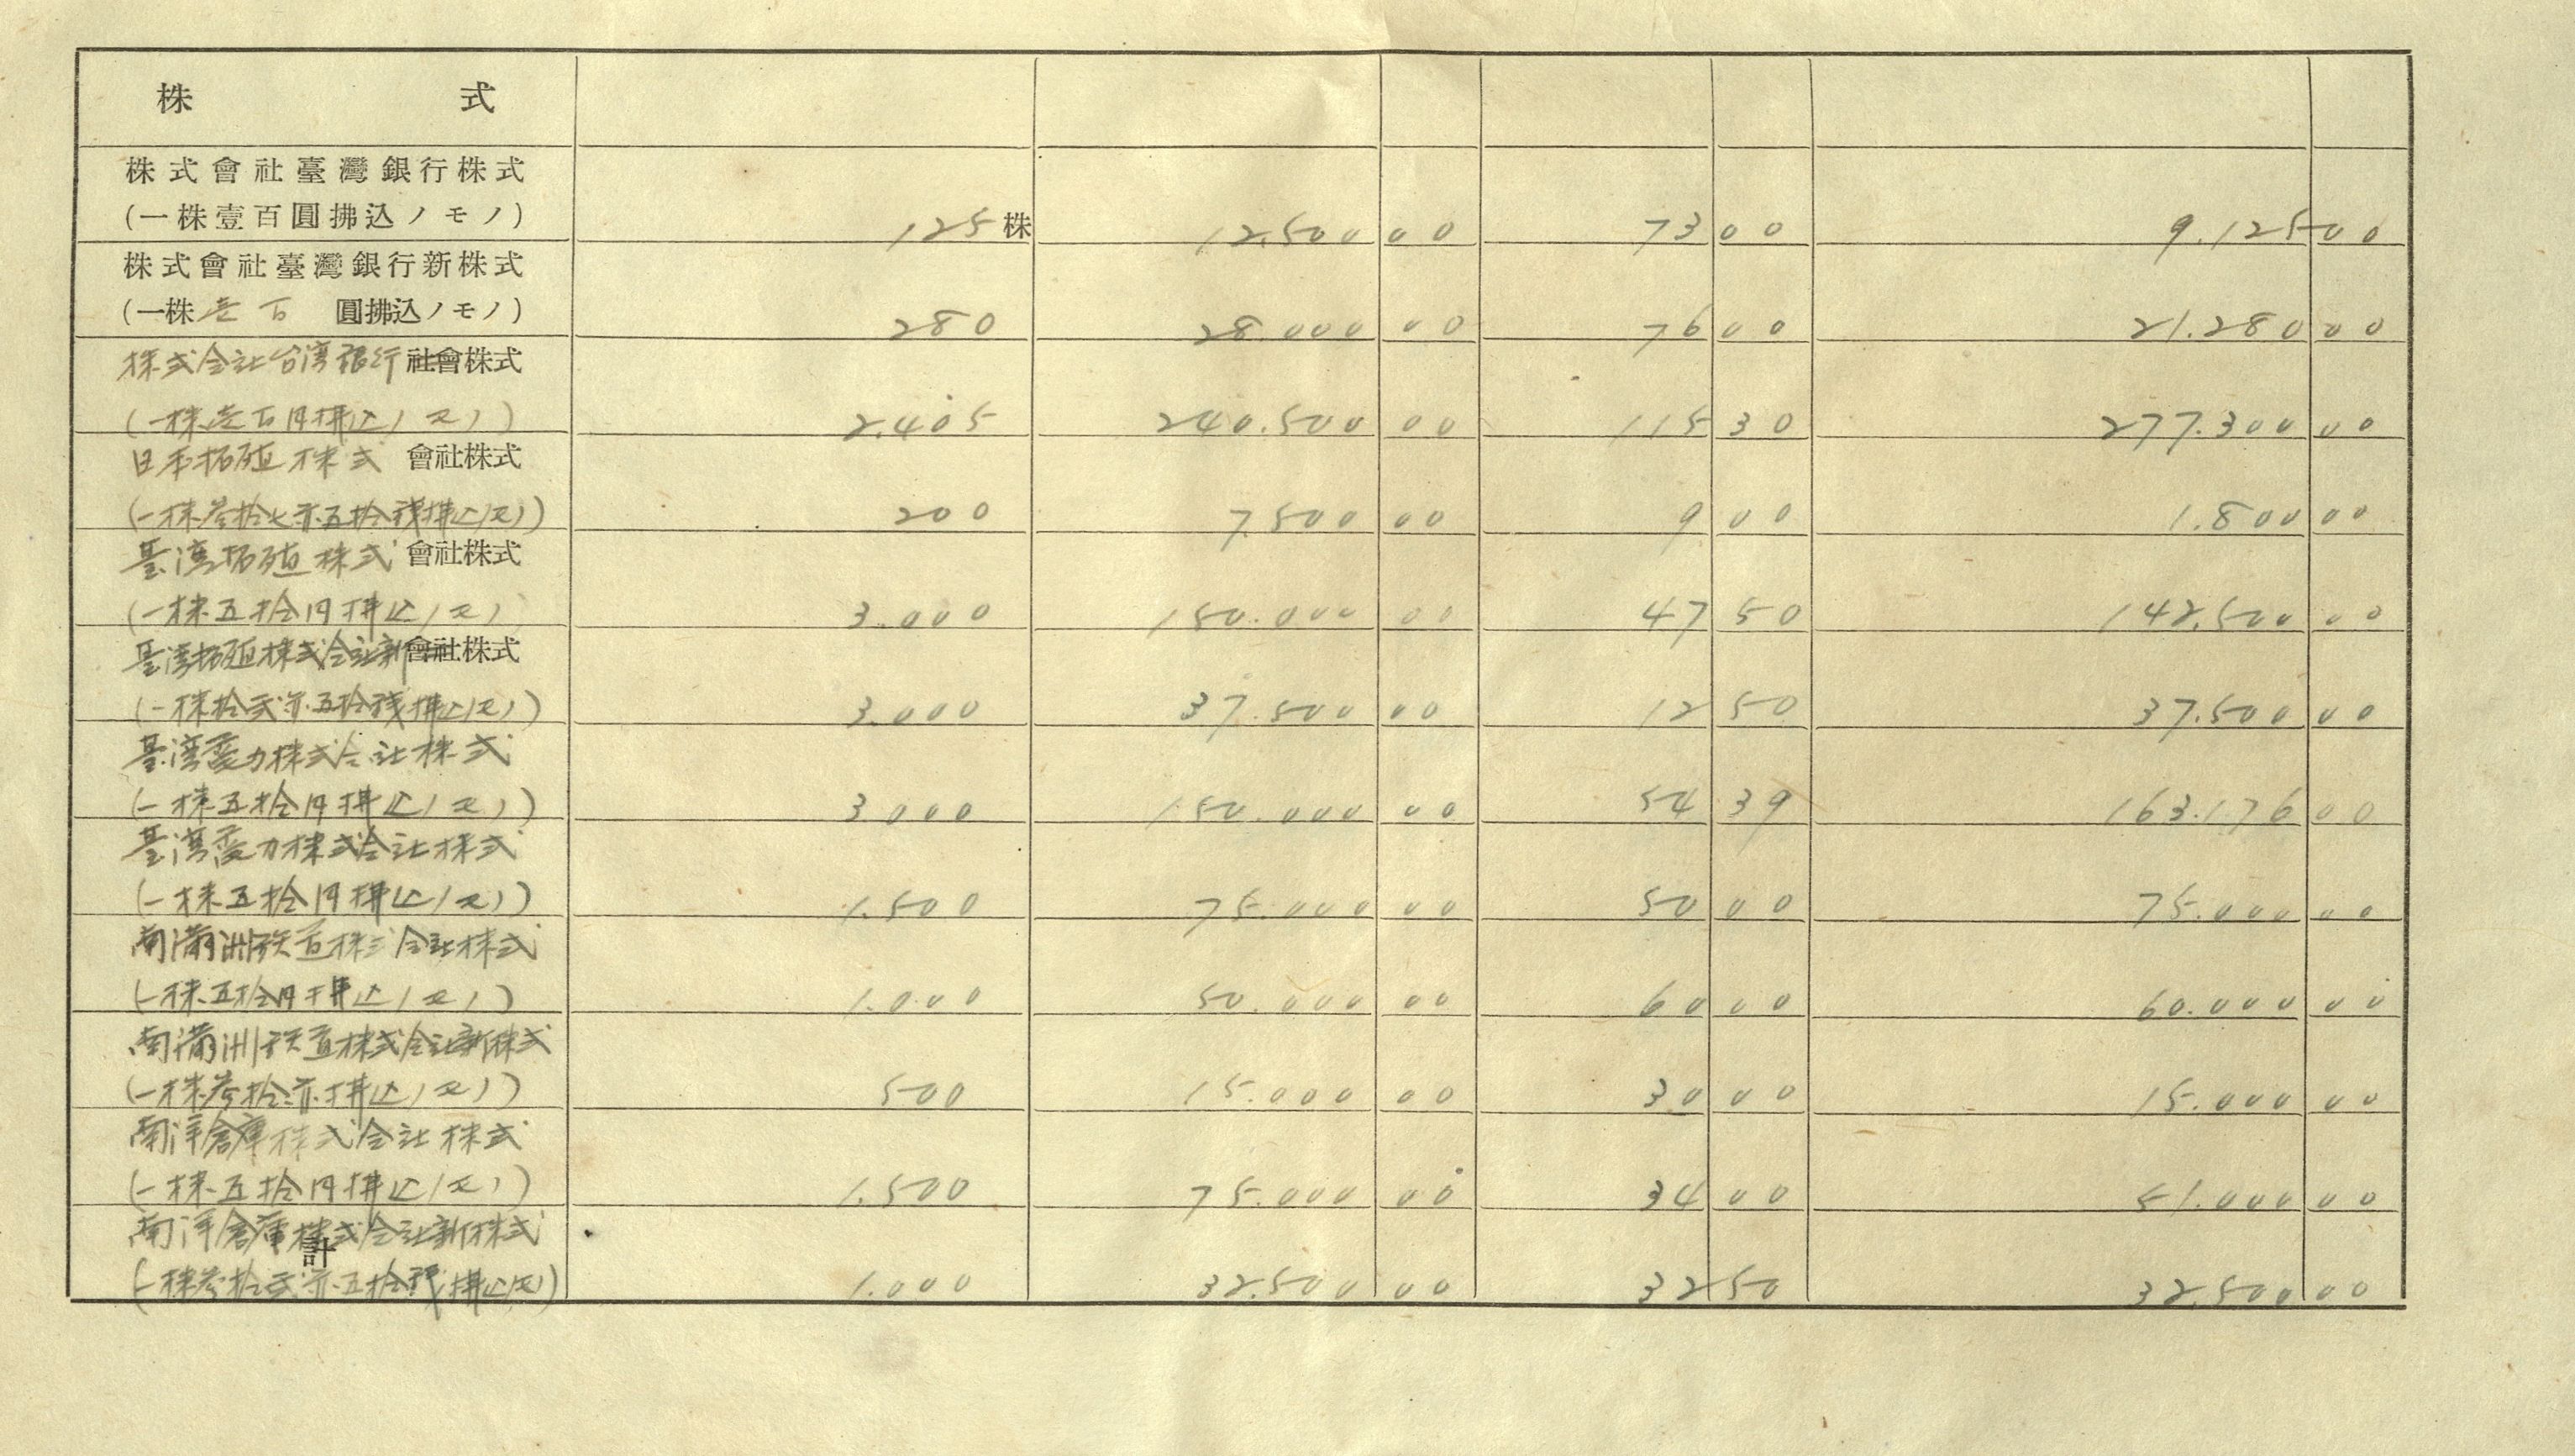 株式
株式會社臺灣銀行株式
(一株壹百圓拂込ノモノ) 125株 12.500 00 73 00 9.125 00
株式會社臺灣銀行新株式
(一株壱百圓拂込ノモノ) 280 28.000 00 76 00 21.280 00
株式会社台湾銀行社會株式
(一株壱百円拂込ノモノ) 2.405 240.500 00 115 30 277.300 00
日本拓殖株式會社株式
(一株参拾七円五拾銭拂込ノモノ) 200 7.500 00 9 00 1.800 00
臺湾拓殖株式會社株式
(一株五拾円拂込ノモノ) 3.000 150.000 00 47 50 142.500 00
臺湾拓殖株式会社新會社株式
(一株拾弐円五拾銭拂込ノモノ) 3.000 37.500 00 12 50 37.500 00
臺湾電力株式会社株式
(一株五拾円拂込ノモノ) 3000 150.000 00 54 39 163.176 00
臺湾電力株式会社株式
(一株五拾円拂込ノモノ) 1.500 75.000 00 50 00 75.000 00
南満洲鉄道株式会社株式
(一株五拾円拂込ノモノ) 1.000 50.000 00 60 00 60.000 00
南満洲鉄道株式会社新株式
(一株参拾円拂込ノモノ) 500 15.000 00 30 00 15.000 00
南洋倉庫株式会社株式
(一株五拾円拂込ノモノ) 1.500 75.000 00 34 00 51.000 00
南洋倉庫株式会社新株式
計
(一株参拾弐円五拾銭拂込ノモノ) 1.000 32.500 00 32 50 32.500 00